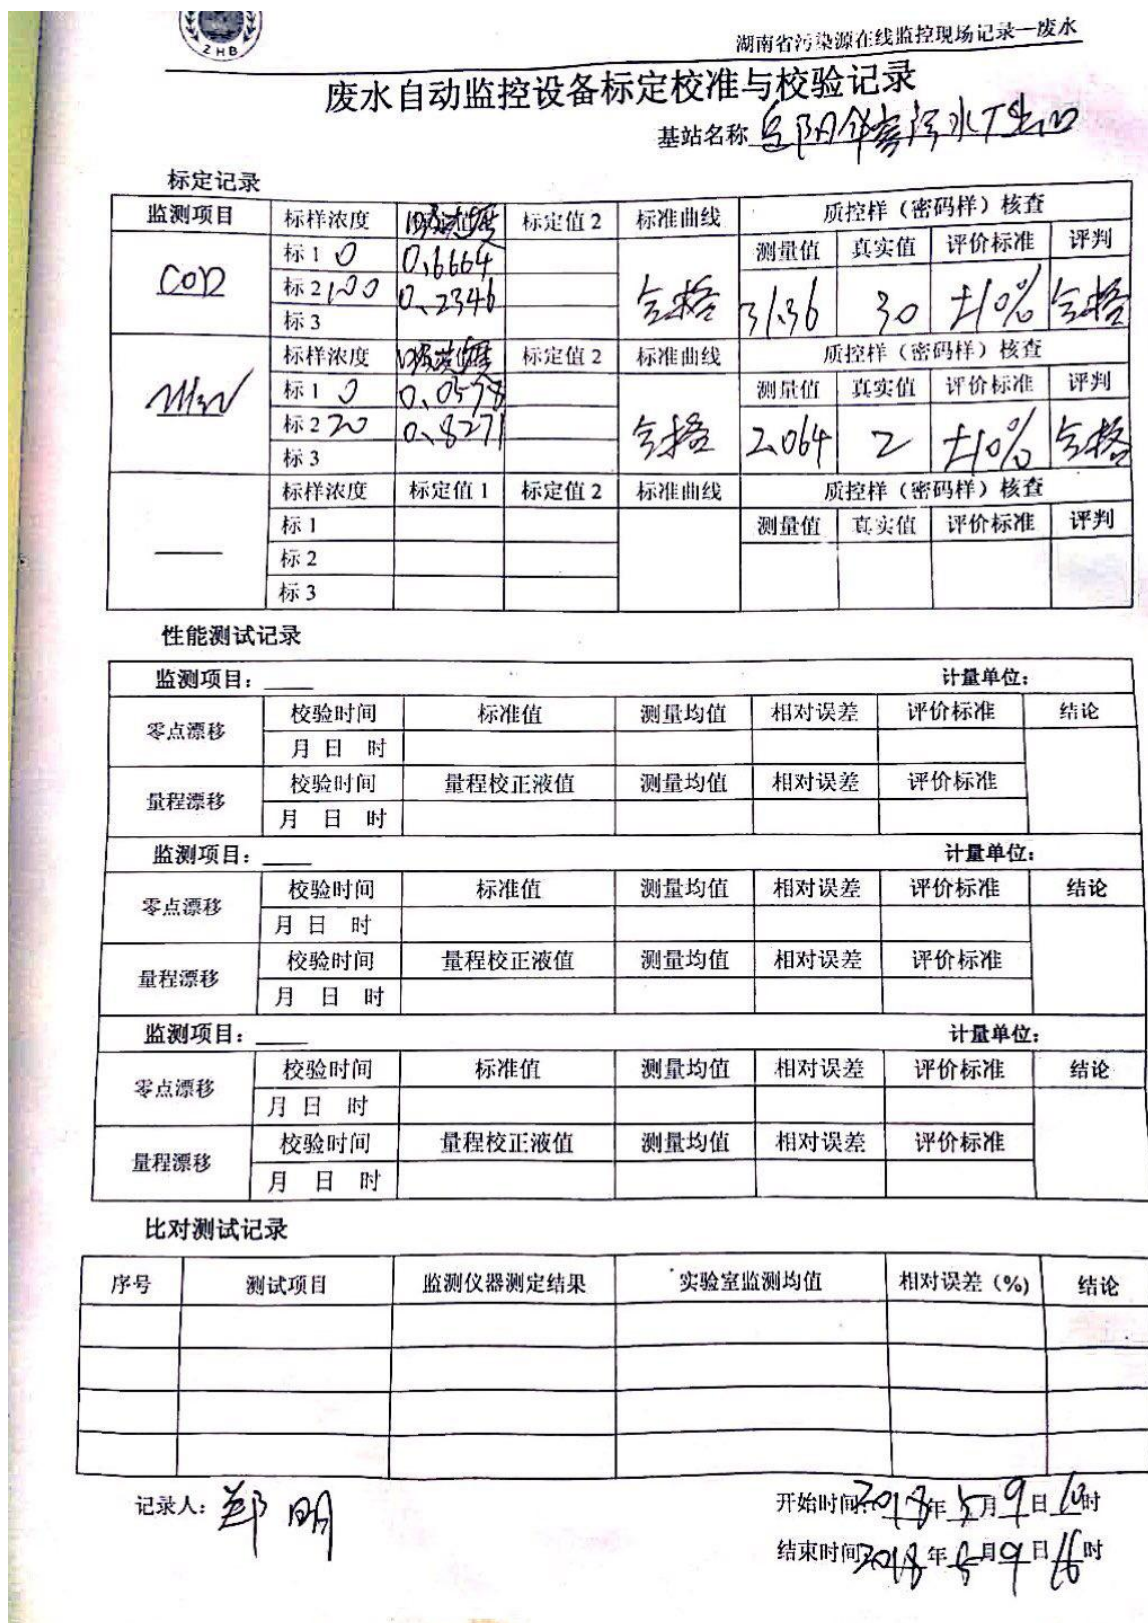 ZHB
湖南省污染源在线监控现场记录—废水
废水自动监控设备标定校准与校验记录
基站名称 岳阳华容污水厂出口
标定记录
监测项目 标样浓度 吸光度 标定值 2 标准曲线 质控样（密码样）核查
测量值 真实值 评价标准 评判
COD 标 1 0 0.6664 合格 31.36 30 ±10% 合格
标 2 100 0.2346
标 3
标样浓度 吸光度 标定值 2 标准曲线 质控样（密码样）核查
测量值 真实值 评价标准 评判
标 1 0 0.0578 合格 2.064 2 ±10% 合格
标 2 20 0.8271
标 3
标样浓度 标定值 1 标定值 2 标准曲线 质控样（密码样）核查
标 1 测量值 真实值 评价标准 评判
标 2
标 3
性能测试记录
监测项目：____ 计量单位：
零点漂移 校验时间 标准值 测量均值 相对误差 评价标准 结论
月 日 时
量程漂移 校验时间 量程校正液值 测量均值 相对误差 评价标准
月 日 时
监测项目：____ 计量单位：
零点漂移 校验时间 标准值 测量均值 相对误差 评价标准 结论
月 日 时
量程漂移 校验时间 量程校正液值 测量均值 相对误差 评价标准
月 日 时
监测项目：____ 计量单位：
零点漂移 校验时间 标准值 测量均值 相对误差 评价标准 结论
月 日 时
量程漂移 校验时间 量程校正液值 测量均值 相对误差 评价标准
月 日 时
比对测试记录
序号 测试项目 监测仪器测定结果 实验室监测均值 相对误差（%） 结论
记录人：郑明 开始时间：2018年5月9日10时
结束时间 2018年5月9日16时